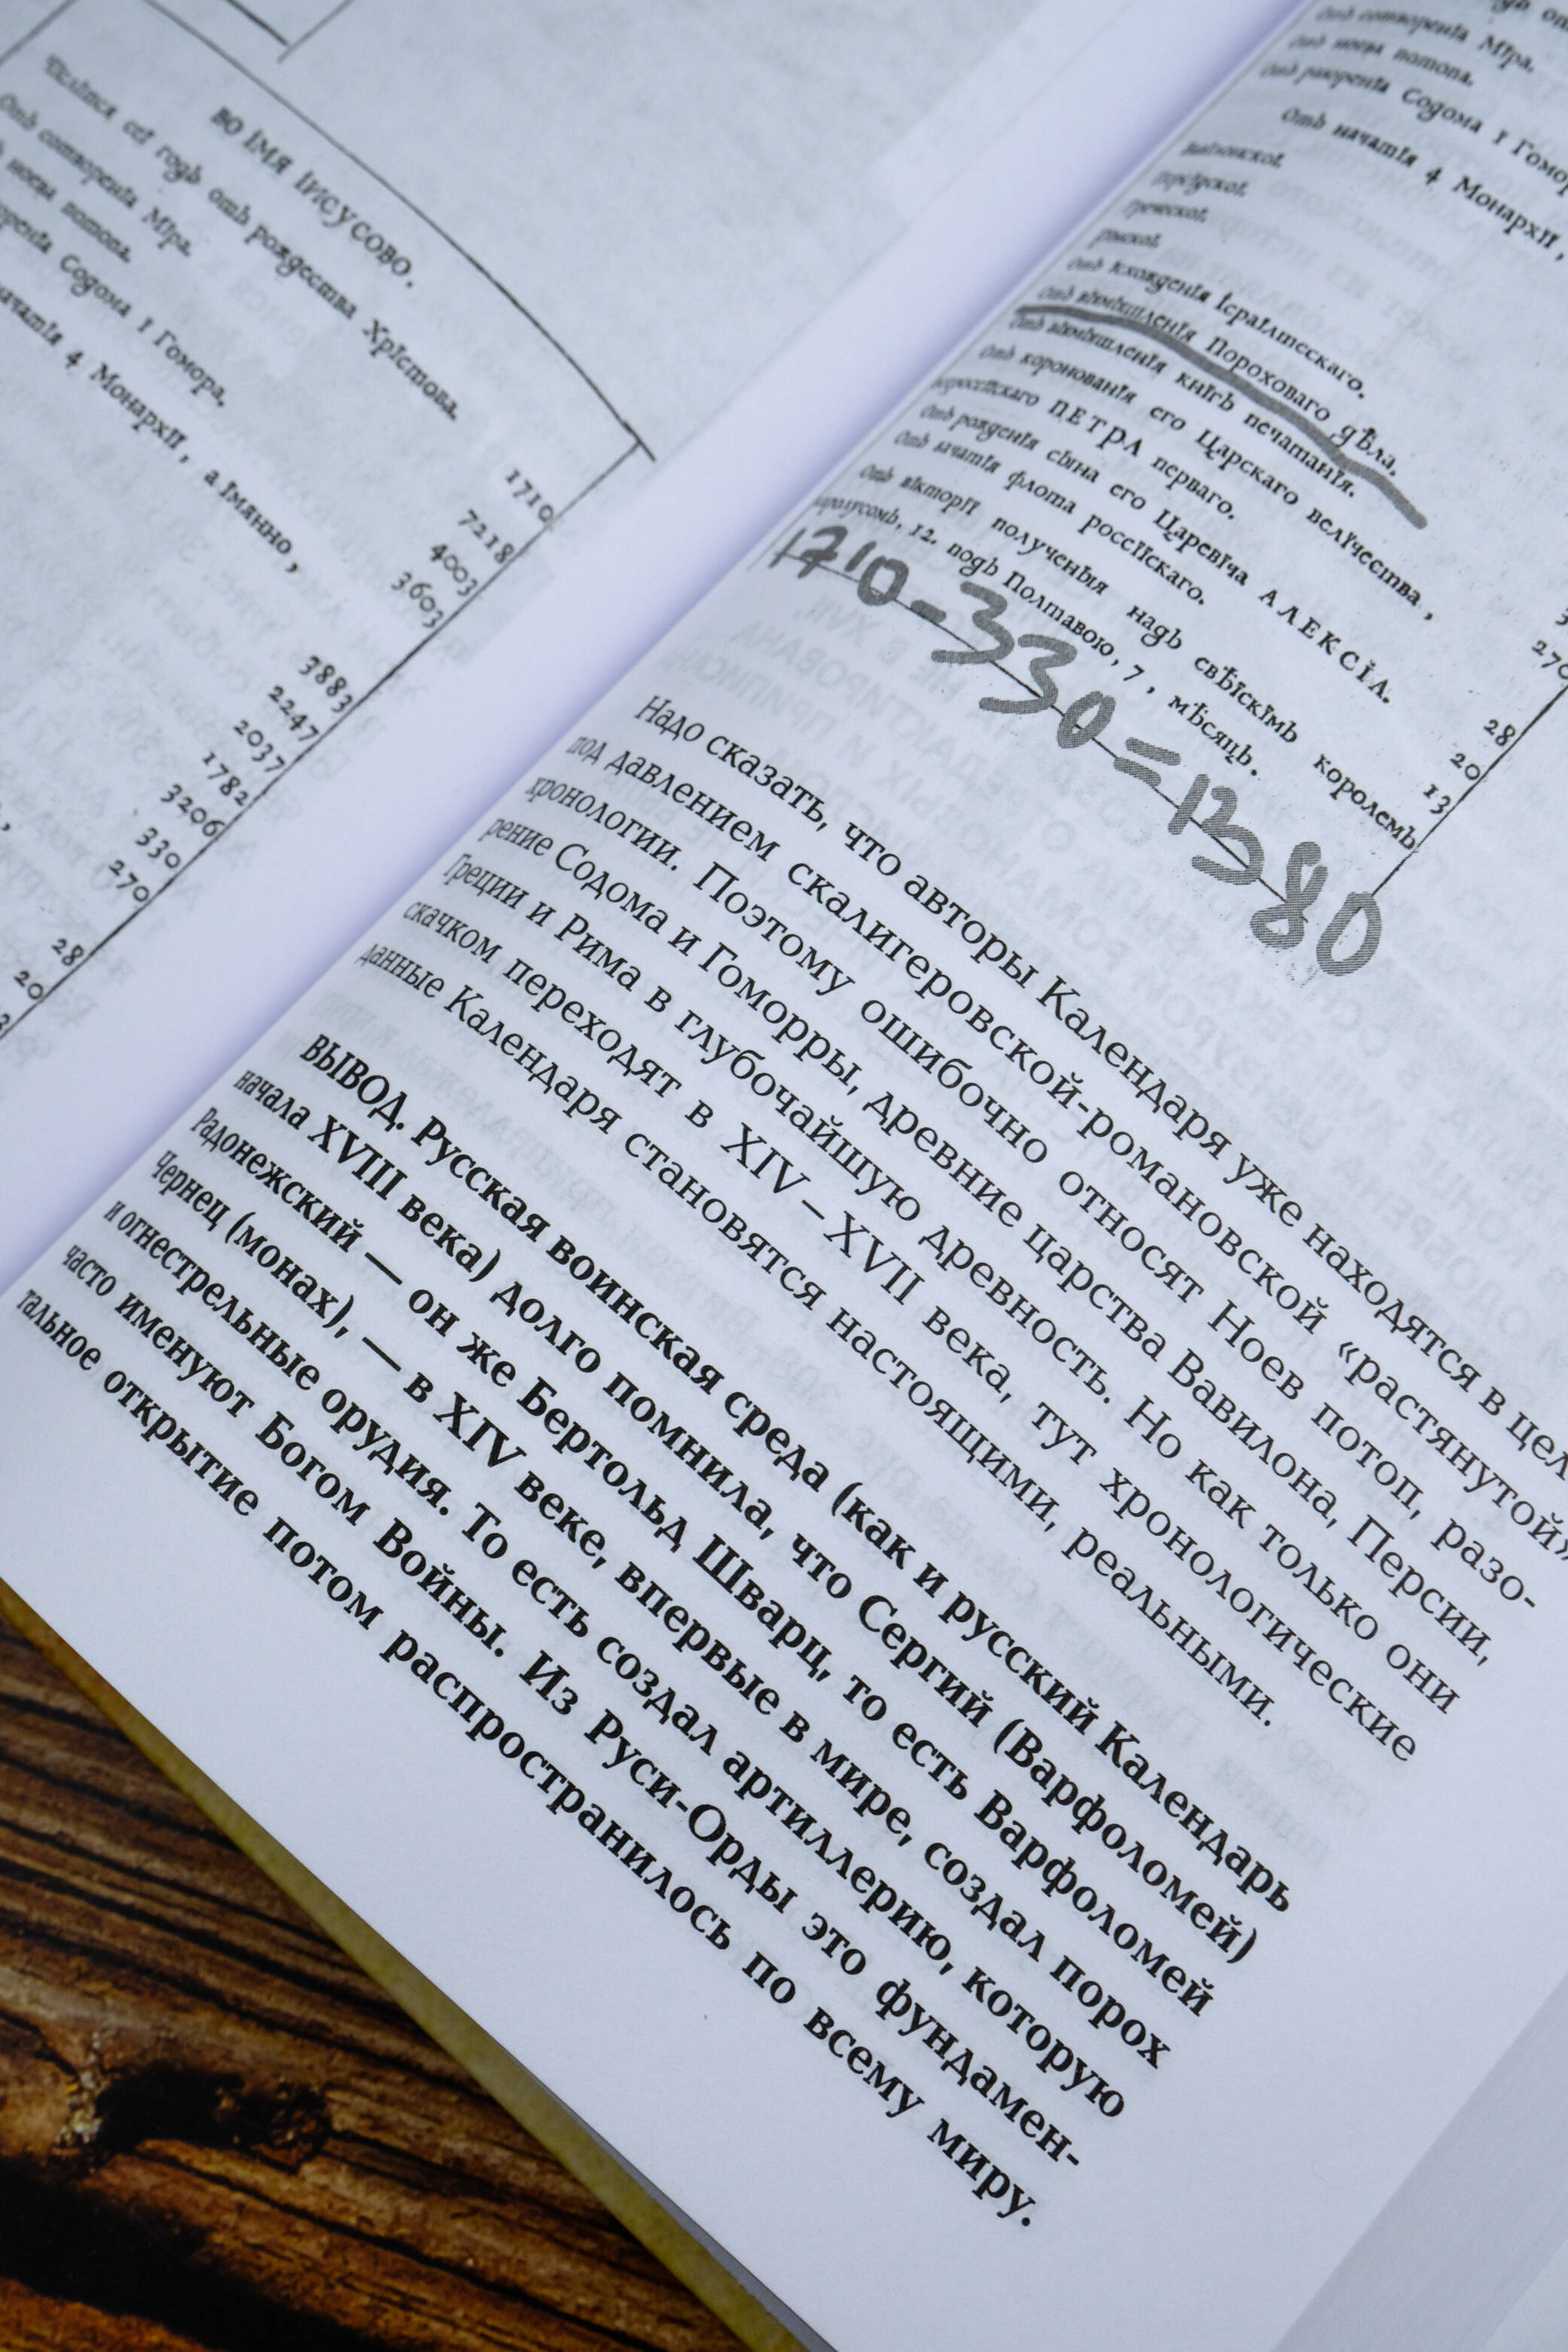 ВО ІМЯ ІИСУСОВО.
сеї годъ отъ рождества Хрістова. 1710
Отъ сотворенїа Мїра. 7218
ноева потопа. 4003
Содома і Гомора. 3603
4 Монархїї, а імянно,
3883
2247
2037
1782
3206
330
270
28
20
Отъ сотворенїа Мїра.
Отъ ноева потопа.
Содома і Гомо
Отъ начатїа 4 Монархїї,
греческої.
рімскої.
Отъ їсхожденїа Ісраїлтескаго.
Отъ вімишленїа Пороховаго дѣла.
Отъ вімишленїа кнїгъ печатанїя.
Отъ коронованїа его Царскаго велїчества,
ПЕТРА перваго. 28
Отъ рожденїа сына его Царевїча АЛЕКСІА. 20
Отъ зачатїа флота россїїскаго. 13
Отъ вікторїї полученыя надъ свѣїскімъ королемъ
12. подъ Полтавою, 7, мѣсяцъ.
1710-330=1380
Надо сказать, что авторы Календаря уже находятся в цел
под давлением скалигеровской-романовской «растянутой»
хронологии. Поэтому ошибочно относят Ноев потоп, разо-
рение Содома и Гоморры, древние царства Вавилона, Персии,
Греции и Рима в глубочайшую древность. Но как только они
скачком переходят в XIV – XVII века, тут хронологические
данные Календаря становятся настоящими, реальными.
ВЫВОД. Русская воинская среда (как и русский Календарь
начала XVIII века) долго помнила, что Сергий (Варфоломей)
Радонежский — он же Бертольд Шварц, то есть Варфоломей
Чернец (монах), — в XIV веке, впервые в мире, создал порох
и огнестрельные орудия. То есть создал артиллерию, которую
часто именуют Богом Войны. Из Руси-Орды это фундамен-
тальное открытие потом распространилось по всему миру.